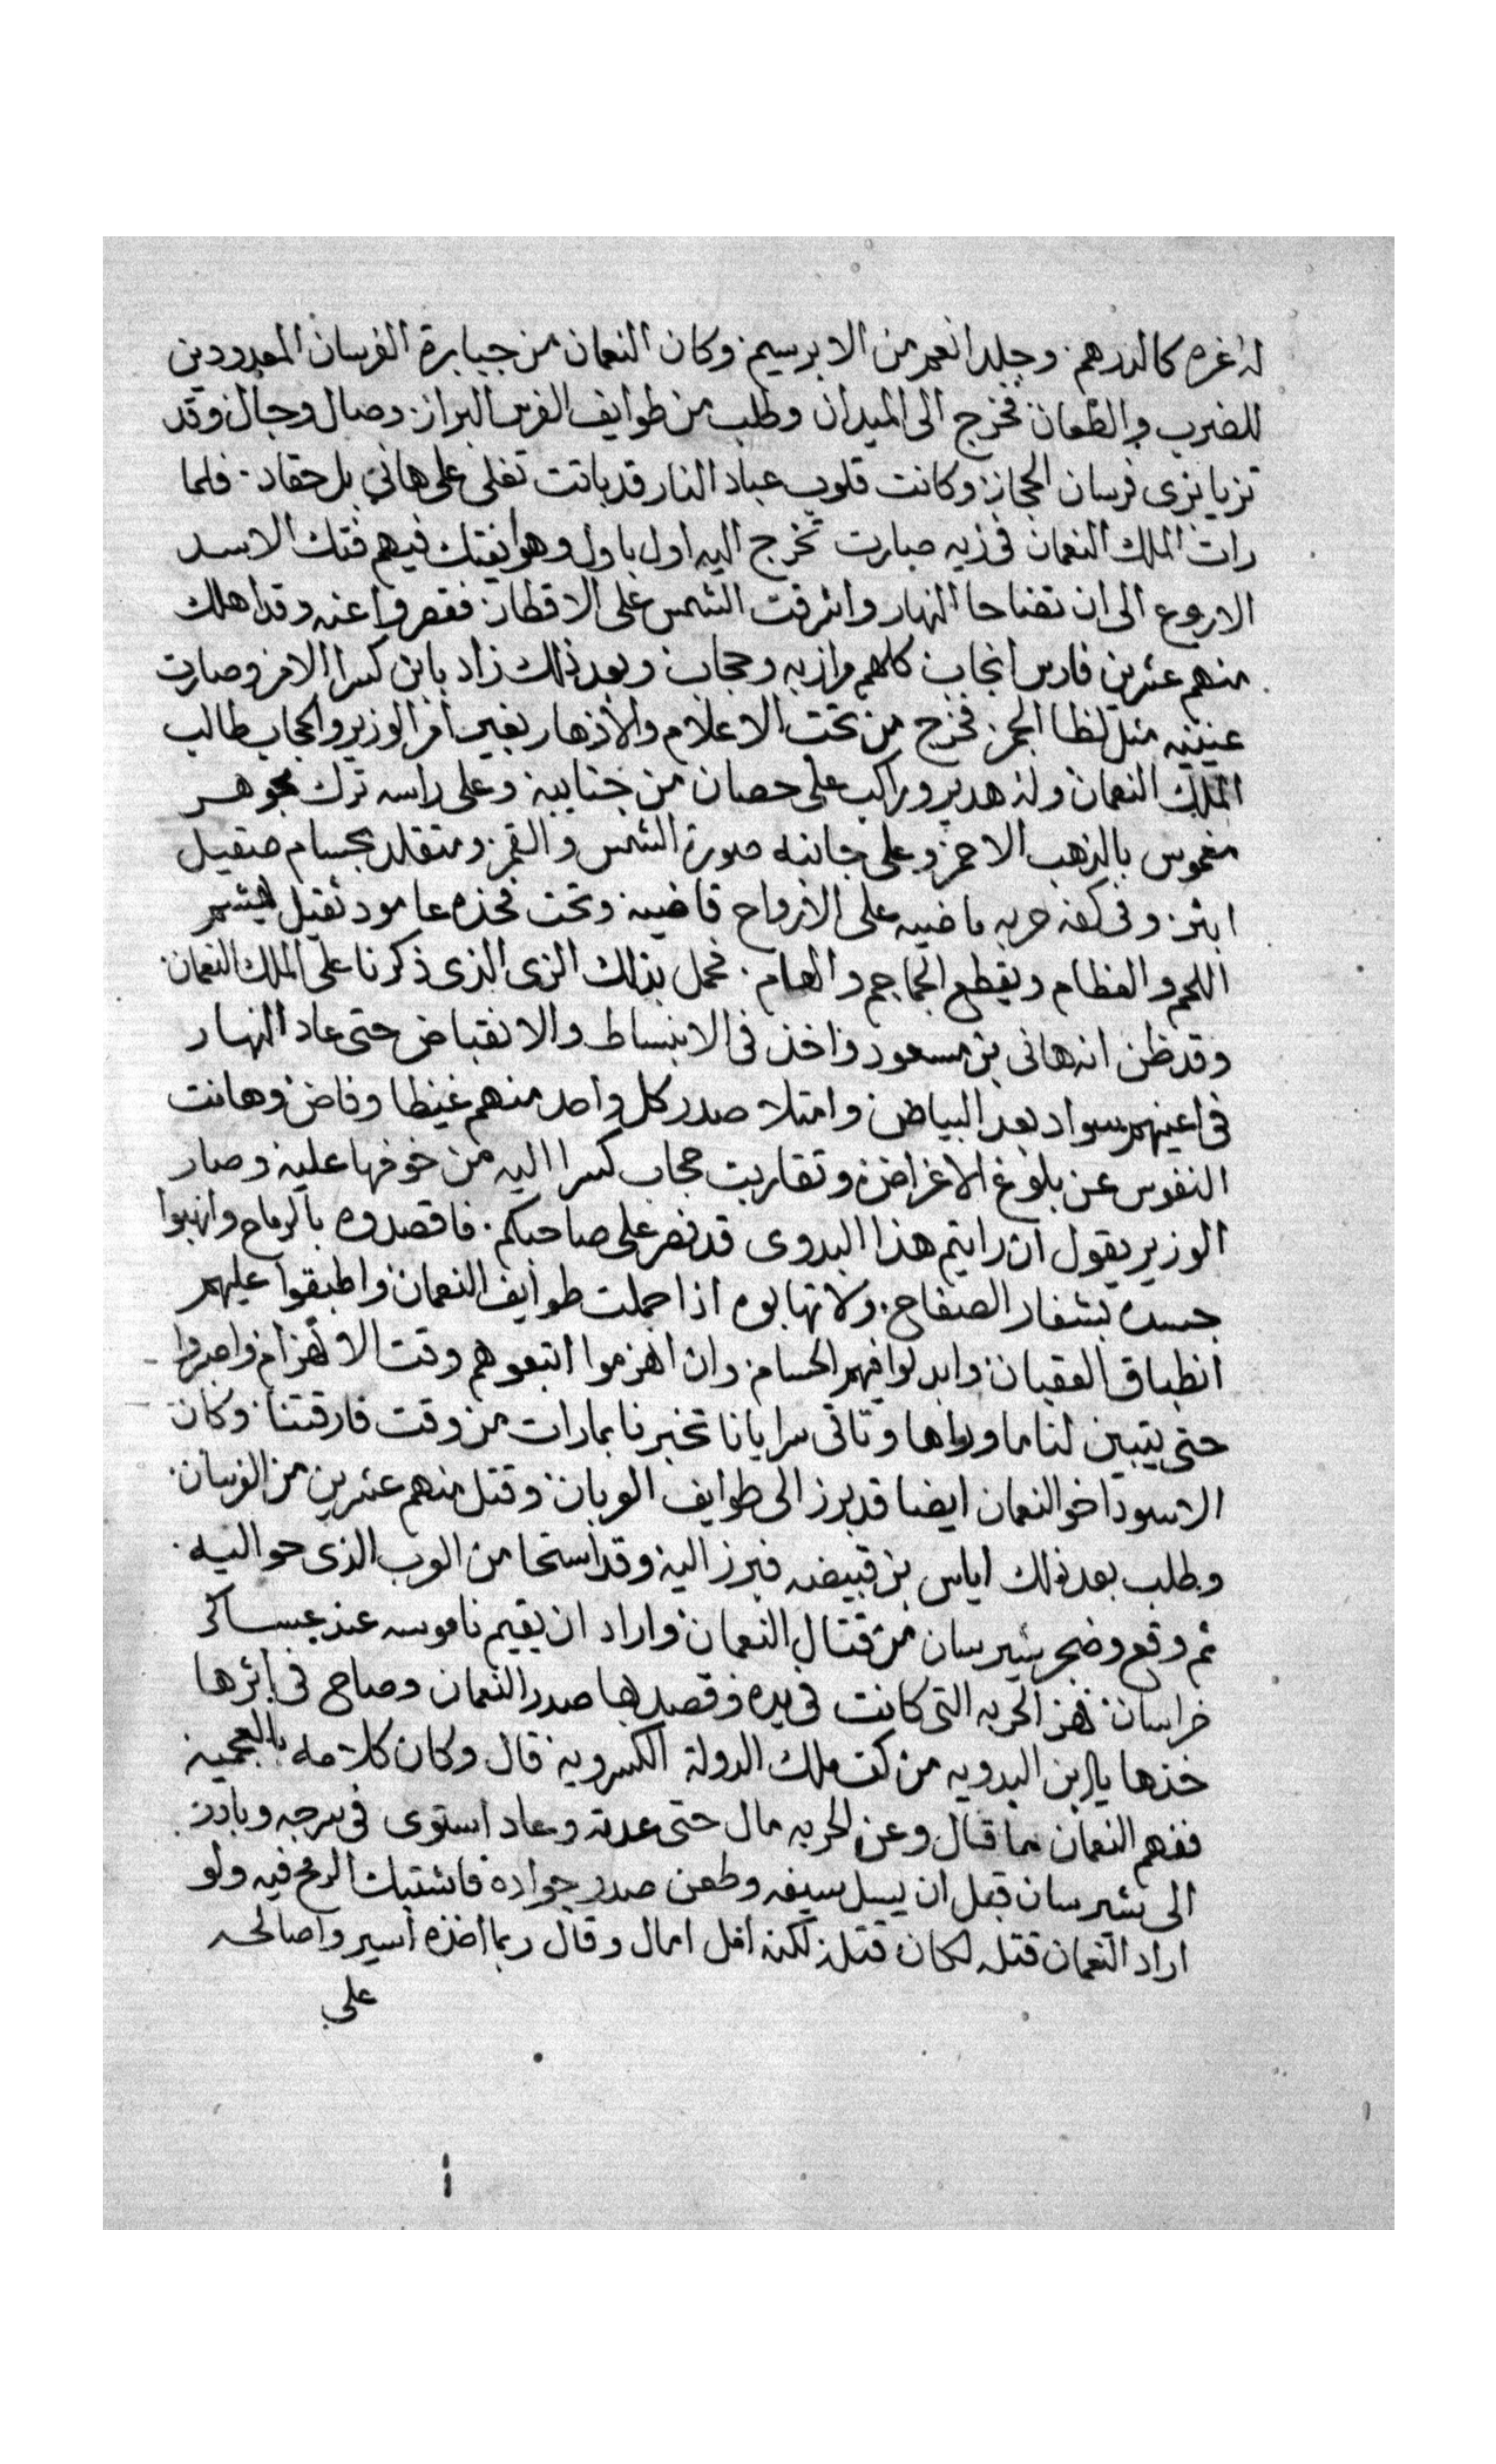 له غره كالدرهم وجلد انعم من الابرسيم وكان النعمان من جبابرة الفرسان المعدودين
للضرب والطعان فخرج الى الميدان وطلب من طوايف الفرس البراز وصال وجال وقد
تزيا بزى فرسان الحجاز وكانت قلوب عباد النار قد باتت تغلى على هاني بل حقاد فلما
رات الملك النعمان فى زيه صارت تخرج اليه اول باول وهو ايفتك فيهم فتك الاسد
الاروع الى ان تضاحا النهار واشرقت الشمس على الاقطار فقصروا عنه وقد اهلك
منهم عشرين فارس انجاب كلهم مرازبه وحجاب وبعد ذلك زاد بابن كسرا الامر وصارت
عينيه مثل لظا الجمر فخرج من تحت الاعلام والازهار بغير امر الوزير والحجاب طالب
الملك النعمان وله هدير وراكب على حصان من جنايبه وعلى راسه ترك مجوهر
مغموس بالذهب الاحمر وعلى جانبه صورة الشمس والقمر ومتقلد بحسام صقيل
ابتر وفى كفه حربه ماضيه على الارواح قاضيه وتحت فخذه عامود ثقيل يهشم
اللحم والعظام ويقطع الجماجم والهام فحمل بذلك الزى الذى ذكرنا على الملك النعمان
وقد ظن انه هانى بن مسعود واخذ فى الانبساط والانقباض حتى عاد النهار
فى اعينهم سواد بعد البياض وامتلا صدر كل واحد منهم غيظا وفاض وهانت
النفوس عن بلوغ الاغراض وتقاربت حجاب كسرا اليه من خوفها عليه وصار
الوزير يقول ان رايتم هذا البدوى قد نصر على صاحبكم فاقصدوه بالرماح وانهبوا
جسده بشفار الصفاح ولا تهابوه اذا حملت طوايف النعمان واطبقوا عليهم
انطباق العقبان وابدلوا فيهم الحسام وان انهزموا اتبعوهم وقت الانهزام واصبروا
حتى يتبين لنا ما وراها وتاتى سرايانا تخبرنا بما رات من وقت فارقتنا وكان
الاسود اخو النعمان ايضا قد برز الى طوايف العربان وقتل منهم عشرين من الفرسان
وطلب بعد ذلك اياس بن قبيصه فبرز اليه وقد استحا من العرب الذى حواليه
ثم وقع وضجر شيرسان من قتال النعمان واراد ان يقيم ناموسه عند عساكر
خراسان فهز الحربه التى كانت فى يده وقصد بها صدر النعمان وصاح فى اثرها
خذها يا ابن البدويه من كف ملك الدولة الكسرويه قال وكان كلامه بالعجميه
ففهم النعمان ما قال وعن الحربه مال حتى عدته وعاد استوى فى سرجه وبادر
الى شيرسان قبل ان يسل سيفه وطعن صدر جواده فاشتبك الرمح فيه ولو
اراد النعمان قتله لكان قتله لكنه امل امال وقال ربما اخذه اسير واصالح
على